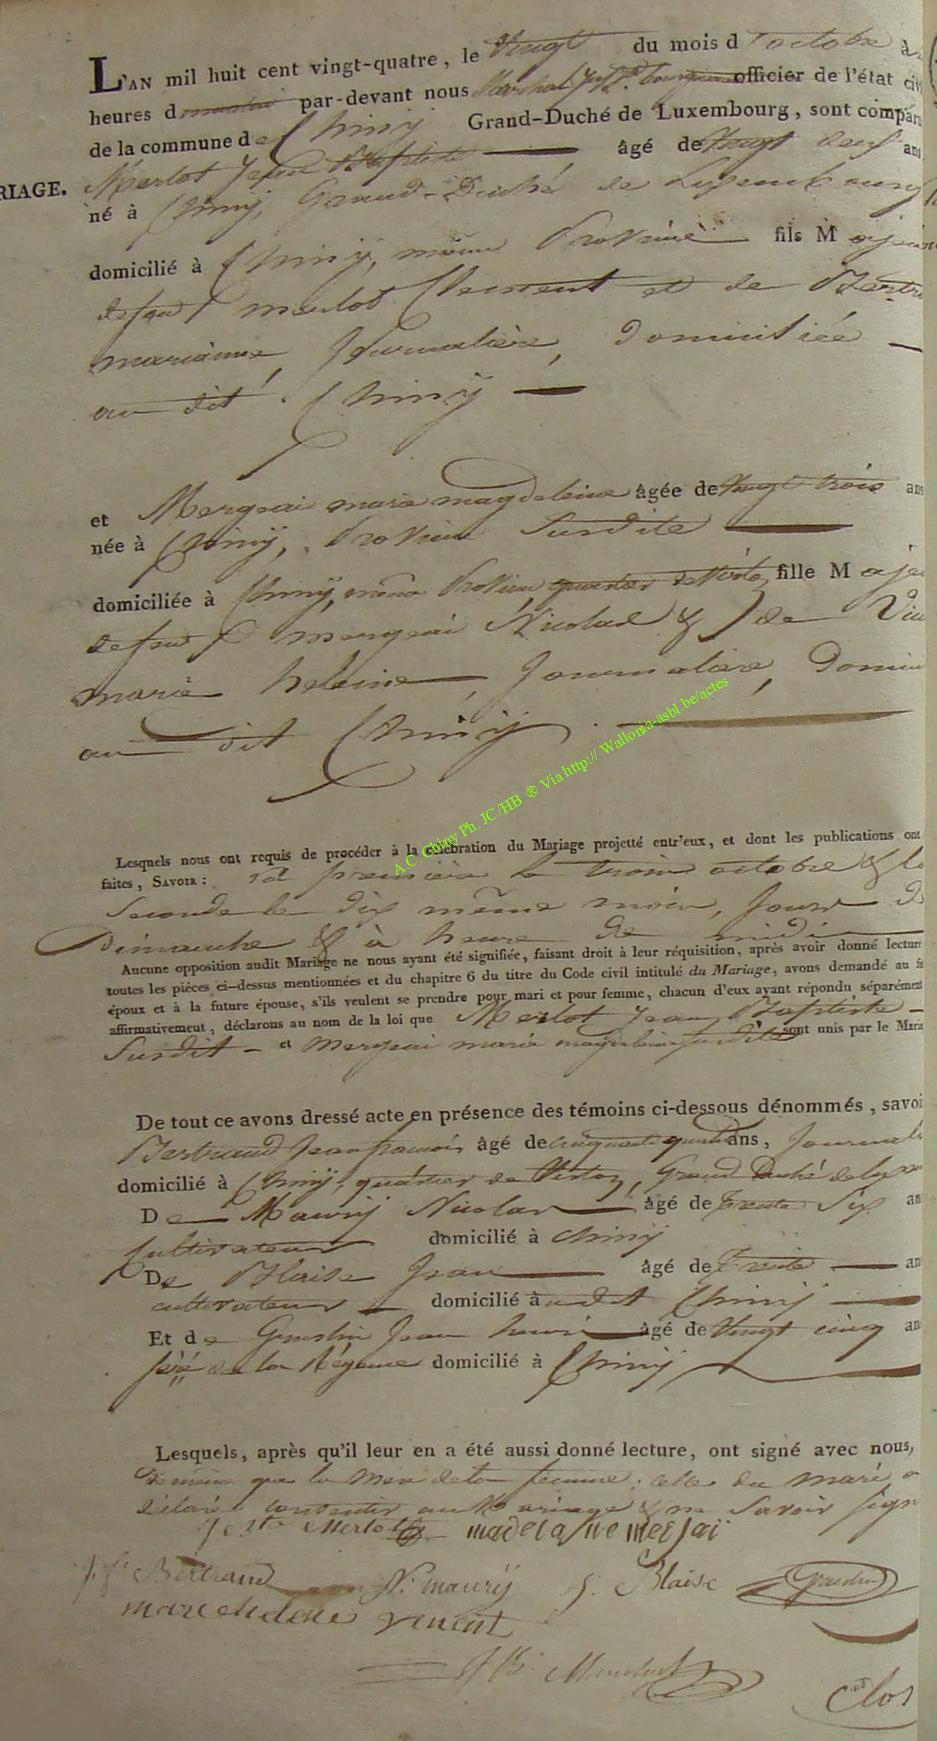 L'AN mil huit cent vingt-quatre, le vingt du mois d'octobre à
heures d par-devant nous Marchal officier de l'état civ
de la commune de Chiny Grand-Duché de Luxembourg, sont comparu
RIAGE.
Merlot Jean Baptiste âgé de vingt neuf ans
né à Chinÿ, Grand-Duché de Luxembourg
domicilié à Chinÿ, même Province fils Majeur
defunt merlot Clement et de Bertr
marianne, Journalière, Domiciliée
au dit Chinÿ
et Mergeai marie magdeleine âgée de vingt trois ans
née à Chinÿ, Province Susdite
domiciliée à Chinÿ, même Province quartier de Virton, fille Maje
defunt mergeai Nicolas & de Vin
marie heleine, Journalière, Domici
au dit Chinÿ
A.C. Chiny Ph. JC/HB ® Via http:// Wallonia-asbl.be/actes
Lesquels nous ont requis de procéder à la célebration du Mariage projetté entr'eux, et dont les publications ont
faites, SAVOIR : première le trois octobre & la
Seconde le dix même mois, Jours de
Dimanche & à heure de midi
Aucune opposition audit Mariage ne nous ayant été signifiée, faisant droit à leur réquisition, après avoir donné lecture
toutes les pièces ci-dessus mentionnées et du chapitre 6 du titre du Code civil intitulé du Mariage, avons demandé au fu
époux et à la future épouse, s'ils veulent se prendre pour mari et pour femme, chacun d'eux ayant répondu séparément
affirmativement, déclarons au nom de la loi que Merlot Jean Baptiste
Susdit et Mergeai marie magdeleine susdite sont unis par le Maria
De tout ce avons dressé acte en présence des témoins ci-dessous dénommés, savoi
Bertrand Jean françois âgé de cinquante quatre ans, Journali
domicilié à Chinÿ, quartier de Virton, Grand Duché de lux
De Maurÿ Nicolas âgé de trente Six an
Cultivateur domicilié à Chinÿ
De Blaise Jean âgé de trente an
cultivateur domicilié à udit Chinÿ
Et de Jean henri âgé de vingt cinq an
de la Régence domicilié à Chinÿ
Lesquels, après qu'il leur en a été aussi donné lecture, ont signé avec nous,
de même que la Mère de la femme; celle du mari a
déclaré consentir au Mariage & ne Savoir sign
J Bte Merlot madelaine merjai
J. f. Bertrand N. maurÿ J. Blaise
marie helene vincent
Clos